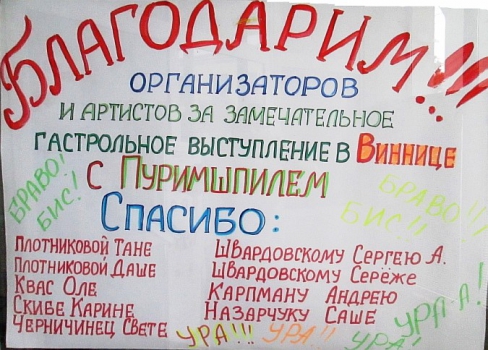 БЛАГОДАРИМ!!!
ОРГАНИЗАТОРОВ
И АРТИСТОВ ЗА ЗАМЕЧАТЕЛЬНОЕ
ГАСТРОЛЬНОЕ ВЫСТУПЛЕНИЕ В ВИННИЦЕ
С ПУРИМШПИЛЕМ
БРАВО!
БИС!!
БРАВО!!!
БИС!!
СПАСИБО:
ПЛОТНИКОВОЙ ТАНЕ
ПЛОТНИКОВОЙ ДАШЕ
КВАС ОЛЕ
СКИБЕ КАРИНЕ
ЧЕРНИЧИНЕЦ СВЕТЕ
ШВАРДОВСКОМУ СЕРГЕЮ А.
ШВАРДОВСКОМУ СЕРЁЖЕ
КАРПМАНУ АНДРЕЮ
НАЗАРЧУКУ САШЕ
УРА!!! УРА!! УРА! УРА-А!